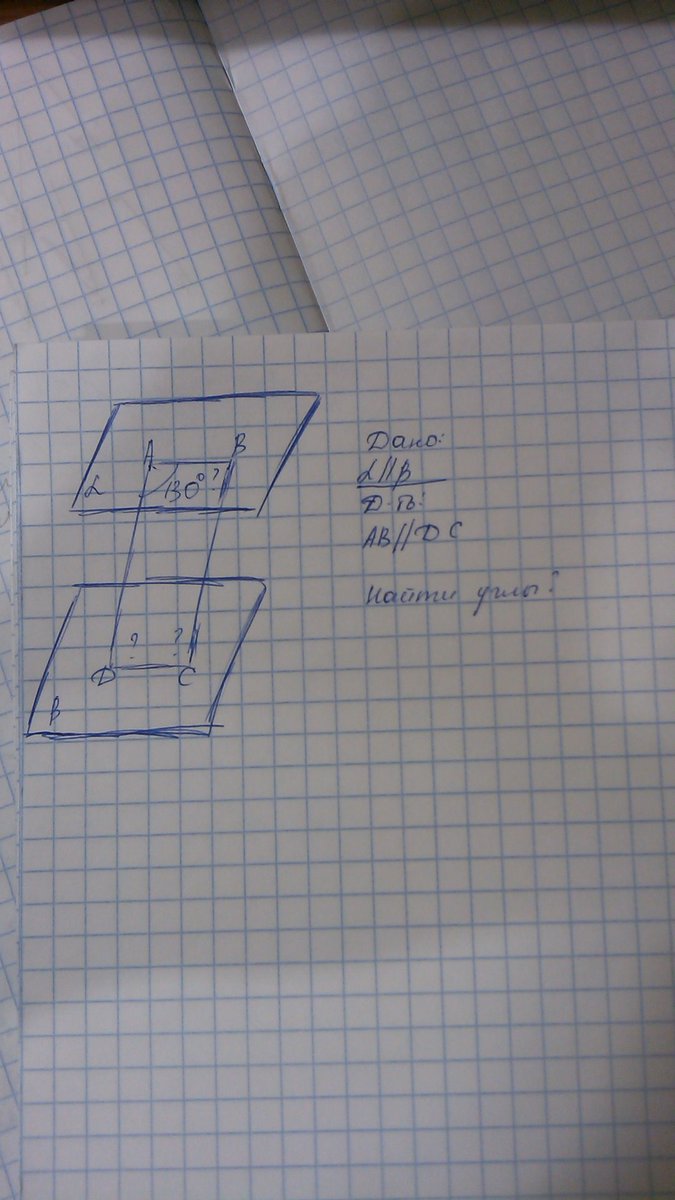 A B
α 130° ?
? ?
D C
β
Дано:
α||β
Д-ть:
AB||DC
Найти углы?